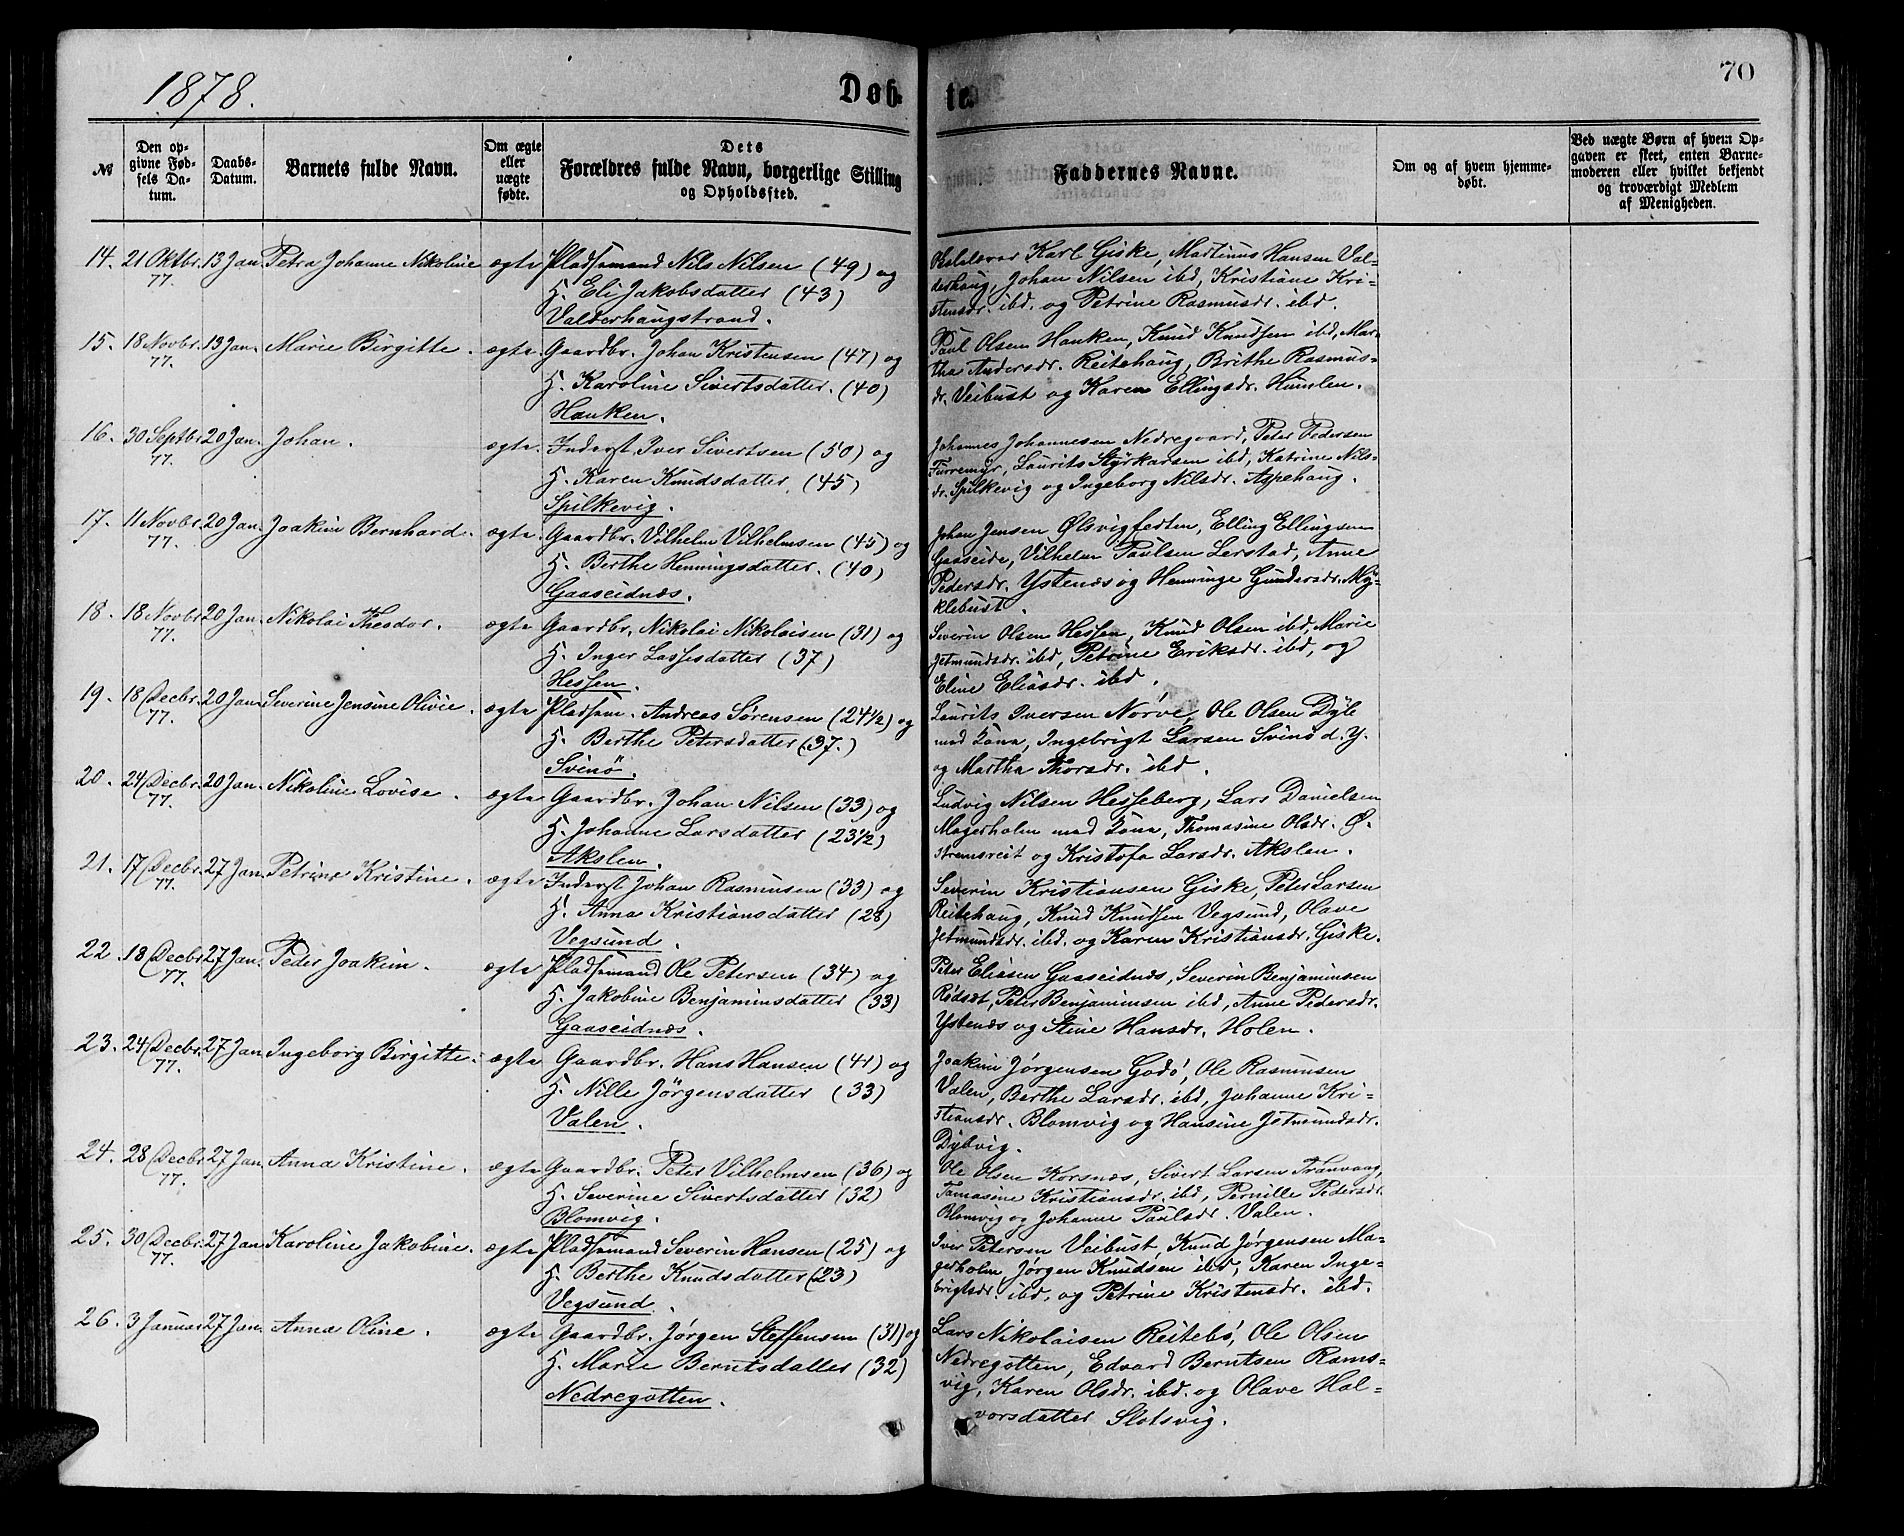 1878.
Døb-
te.
70
№
Den op-
givne Fød-
sels Da-
tum.
Daabs-
Datum.
Barnets fulde Navn.
Om ægte
eller
uægte
fødte.
Dets
Forældres fulde Navn, borgerlige Stilling
og Opholdssted.
Faddernes Navne.
Om og af hvem hjemme-
døbt.
Ved uægte Børn af hvem Op-
gaven er skeet, enten Barne-
moderen eller hvilket bekjendt
og troværdigt Medlem
af Menigheden.
14. 21 Oktbr. 13 Jan. Petra Johanne Nikoline ægte Pladsemand Nils Nilsen (49) og
77. H. Eli Jakobsdatter (43)
Valderhaugstrand.
Karl Giske, Martinus Hansen Val-
derhaug, Johan Nilsen ibd, Kristiane Kri-
stensdr. ibd. og Petrine Rasmusdr. ibd.
15. 18 Novbr. 13 Jan. Marie Birgitte. ægte Gaardbr. Johan Kristensen (47) og
77. H. Karoline Sivertsdatter. (40)
Hanken.
Paul Olsen Hanken, Knud Knudsen ibd, Mar-
tha Andersdr. Reitehaug, Brithe Rasmus-
dr. Veibust og Karen Ellingsdr. Humlen.
16. 30 Septbr. 20 Jan. Johan. ægte. Inderst Iver Sivertsen (50) og
77. H. Karen Knudsdatter. (45)
Spilkevig.
Johannes Johannesen Nedregaard, Peter Pedersen
Furremyr, Laurits Styrkarsen ibd, Katrine Nils-
dr. Spilkevig og Ingeborg Nilsdr. Aspehaug.
17. 11 Novbr. 20 Jan. Joakim Bernhard. ægte. Gaardbr. Vilhelm Vilhelmsen (45) og
77. H. Berthe Henningsdatter. (40)
Gaaseidnæs.
Johan Jensen Ølsvigfedten, Elling Ellingsen
Gaaseide, Vilhelm Paulsen Lerstad, Anne
Pedersdr. Ystenæs og Henninge Gundersdr. My-
klebust.
18. 18 Novbr. 20 Jan. Nikolai Theodor. ægte Gaardbr. Nikolai Nikolaisen (31) og
77. H. Inger Lassesdatter (37)
Hessen.
Severin Olsen Hessen, Knud Olsen ibd, Marie
Jetmundsdr. ibd, Petrine Eriksdr. ibd, og
Eline Eliasdr. ibd.
19. 18 Decbr. 20 Jan. Severine Jensine Olivie. ægte Pladsem. Andreas Sørensen (24 1/2) og
77. H. Berthe Petersdatter (37.)
Svinø.
Laurits Iversen Nørve, Ole Olsen Dyb
med Kona, Ingebrigt Larsen Svinø d. Y.
og Martha Thorsdr. ibd.
20. 24 Decbr. 20 Jan. Nikoline Lovise. ægte Gaardbr. Johan Nilsen (33) og
77. H. Johanne Larsdatter (23 1/2)
Akslen.
Ludvig Nilsen Hesseberg, Lars Danielsen
Magerholm med Kona, Thomasine Olsdr. Ø.
Strømsreit og Kristofa Larsdr. Akslen.
21. 17 Decbr. 27 Jan. Petrine Kristine. ægte Inderst Johan Rasmusen (33) og
77. H. Anna Kristiansdatter (28)
Vegsund.
Severin Kristiansen Giske, Peter Larsen
Reitehaug, Knud Knudsen Vegsund, Olave
Jetmundsdr. ibd. og Karen Kristiansdr. Giske.
22. 18 Decbr. 27 Jan. Peder Joakim. ægte Pladsemand Ole Petersen (34) og
77. H. Jakobine Benjaminsdatter (33)
Gaaseidnæs.
Peter Eliasen Gaaseidnæs, Severin Benjaminsen
Rødsæt, Peter Benjaminsen ibd, Anne Pedersdr.
Ystenæs og Stine Hansdr. Holen.
23. 24 Decbr. 27 Jan. Ingeborg Birgitte. ægte Gaardbr. Hans Hansen (41) og
77. H. Nille Jörgensdatter (33)
Valen.
Joakim Jørgensen Godø, Ole Rasmusen
Valen, Berthe Larsdr. ibd, Johanne Kri-
stiansdr. Blomvig og Hansine Jetmundsdr.
Dybvig.
24. 28 Decbr. 27 Jan. Anna Kristine. ægte Gaardbr. Peter Vilhelmsen (36) og
77. H. Severine Sivertsdatter (32)
Blomvig.
Ole Olsen Korsnæs, Sivert Larsen Tranvaag,
Tomasine Kristiansdr. ibd, Pernille Pedersdr.
Blomvig og Johanne Paulsdr. Valen.
25. 30 Decbr. 27 Jan. Karoline Jakobine. ægte Pladsemand Severin Hansen (25) og
77. H. Berthe Knudsdatter (23)
Vegsund.
Iver Petersen Veibust, Knud Jørgensen Ma-
gerholm, Jørgen Knudsen ibd, Karen Inge-
brigtsdr. ibd. og Petrine Kristensdr. ibd.
26. 3 Januar 27 Jan. Anna Oline. ægte Gaardbr. Jørgen Steffensen (31) og
H. Marie Berntsdatter (32)
Nedregotten.
Lars Nikolaisen Reitebø, Ole Olsen
Nedregotten, Edvard Berntsen Rams-
vig, Karen Olsdr. ibd. og Olave Hal-
vorsdatter Slotsvig.